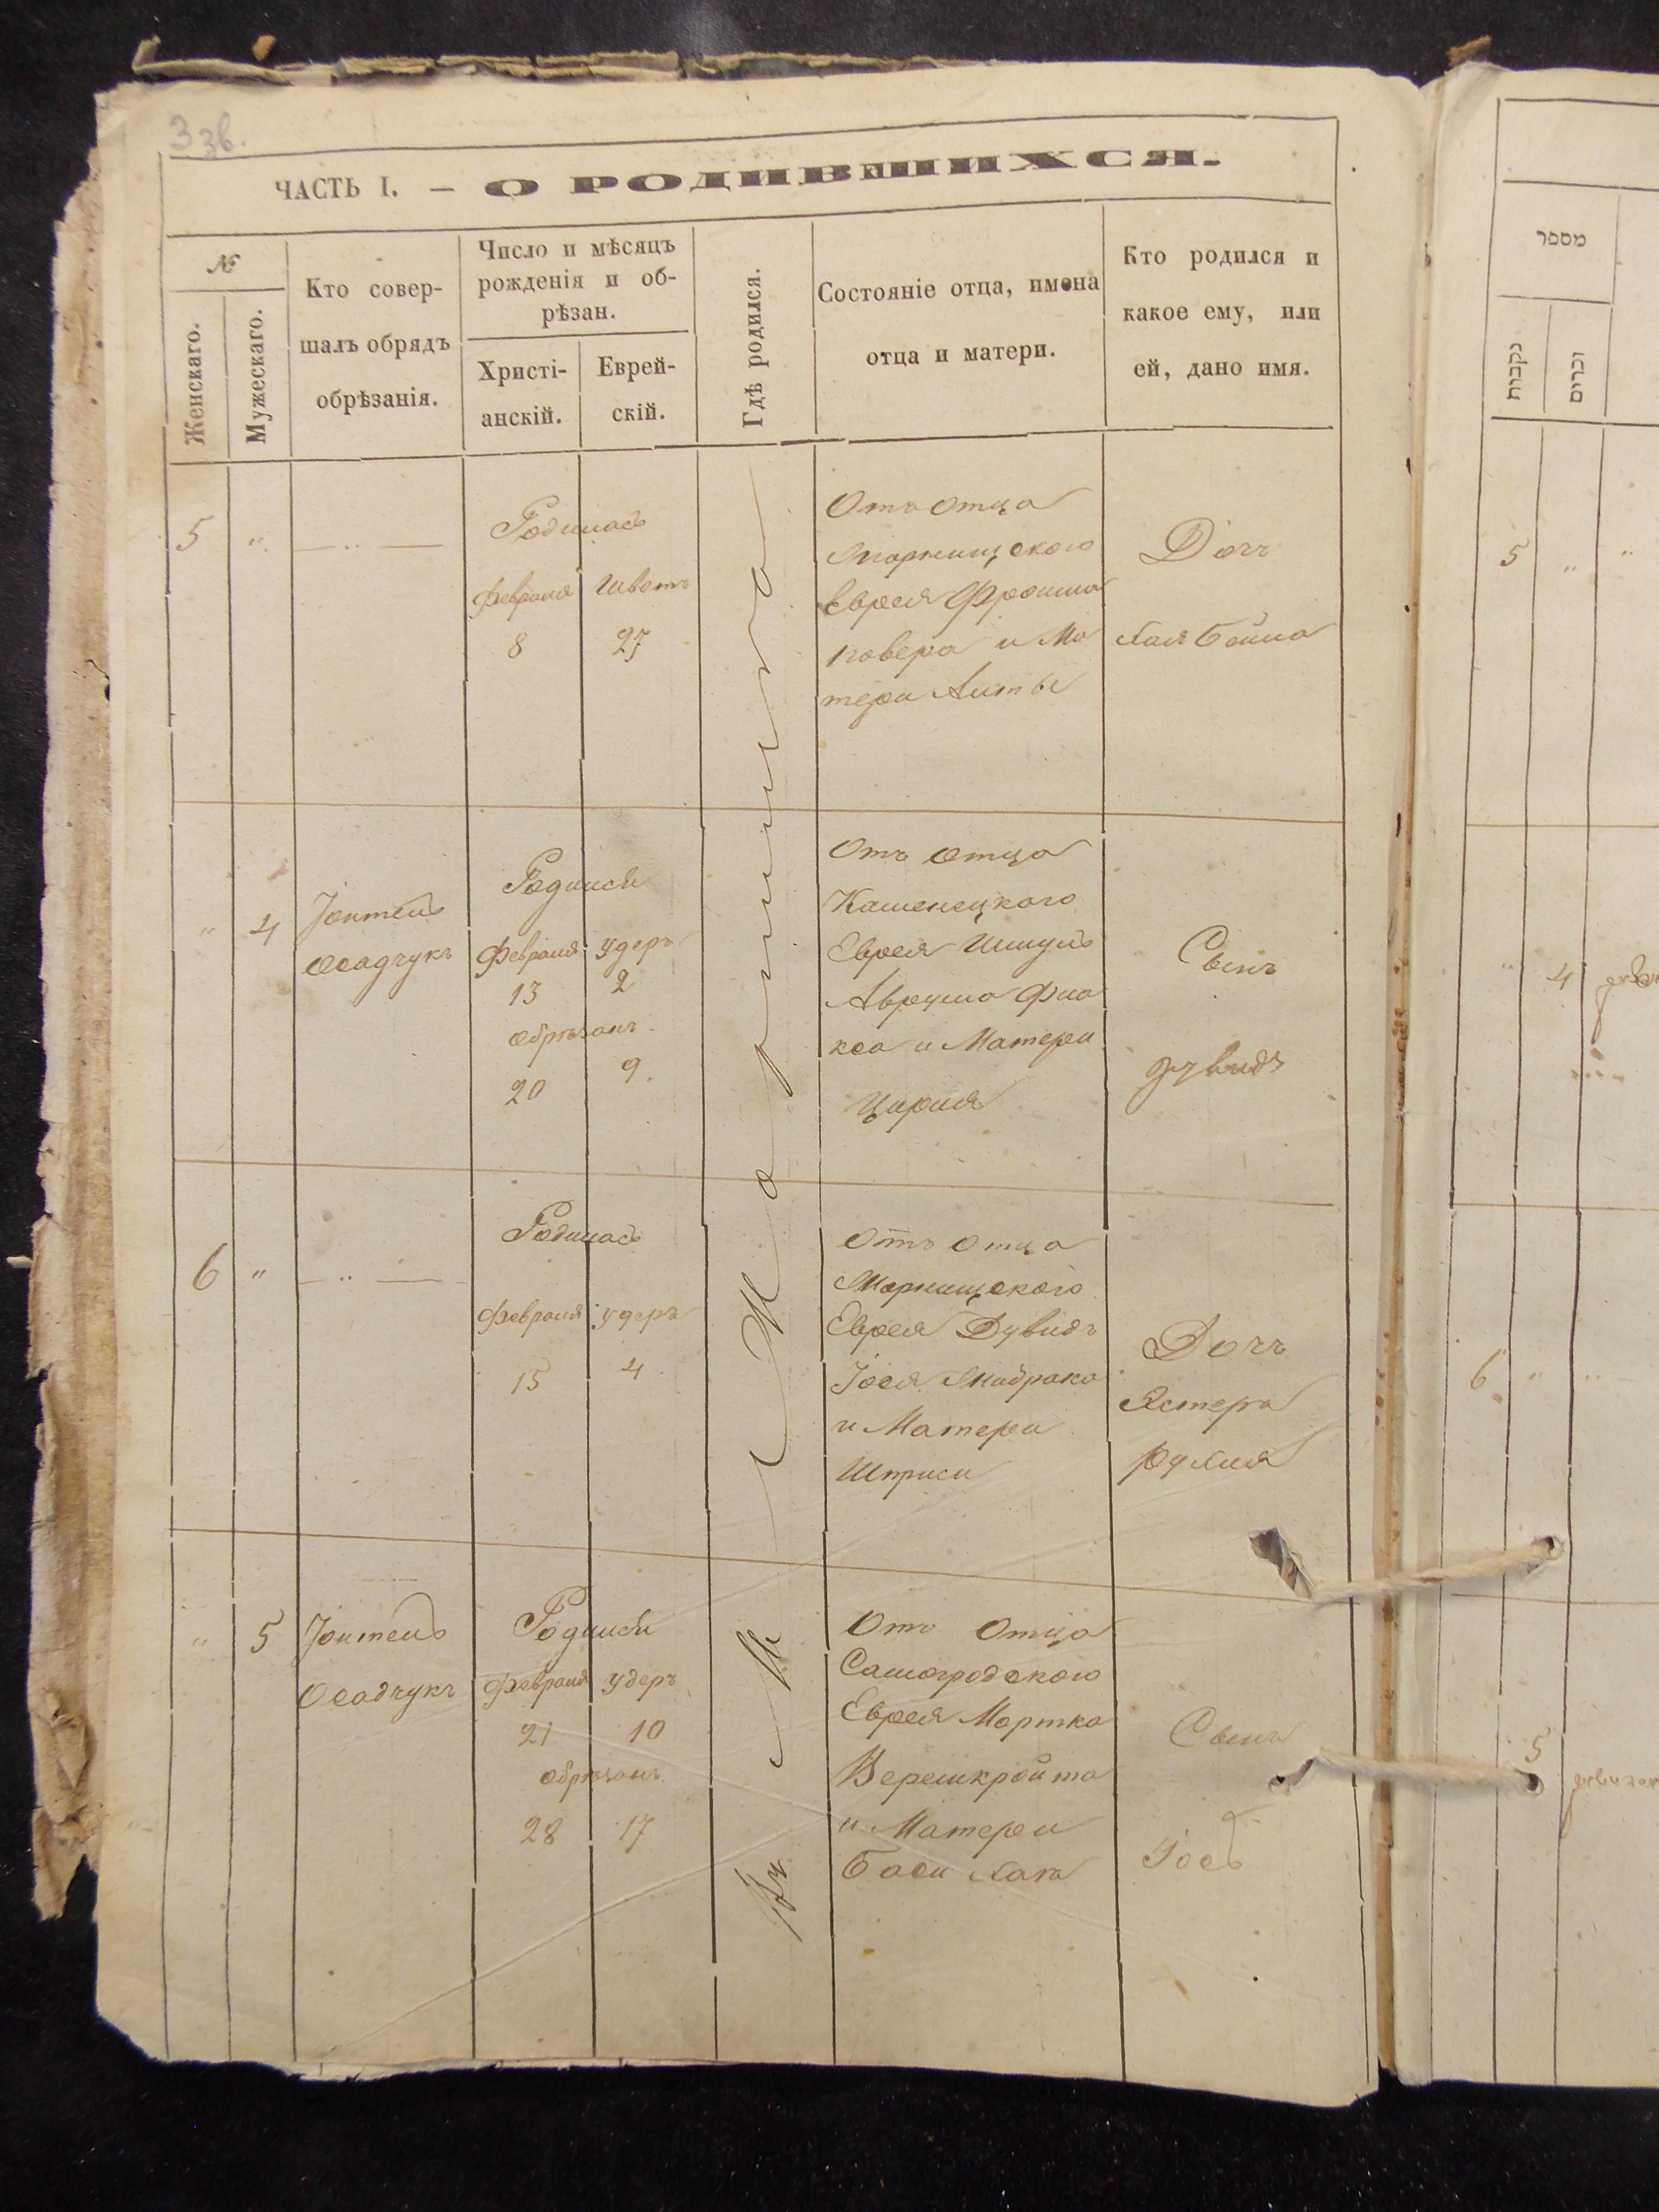 3 зв.
ЧАСТЬ I. — О РОДИВШИХСЯ.
№
Женскаго.
Мужескаго.
Кто совер-
шалъ обрядъ
обрѣзанія.
Число и мѣсяцъ
рожденія и об-
рѣзан.
Христі-
анскій.
Еврей-
скій.
Гдѣ родился.
Состояніе отца, имена
отца и матери.
Кто родился и
какое ему, или
ей, дано имя.
Въ М. Жорнища
5 " — " —
Родилась
Февраля Шватъ
8 27
Отъ отца
Жорнищского
Еврея Фроима
Ма
тери
Дочь
Хая Бейла
" 4
Іонтель
Осадчукъ
Родился
Февраля Удеръ
13 2
обрѣзанъ
20 9.
Отъ отца
Каменецкого
Еврея Шмуль
Аврума Фна
кса и Матери
Цирля
Сынъ
Дувидъ
6 " — " —
Родилась
Февраля Удеръ
15 4
Отъ отца
Жорнищского
Еврея Дувидъ
Іося
и Матери
Шприси
Дочь
Эстера
Рухля
" 5
Іонтель
Осадчукъ
Родился
Февраля Удеръ
21 10
обрѣзанъ
28 17
Отъ Отца
Самогродского
Еврея Мортка
Верешкройта
и Матери
Баси Хаи
Сынъ
Іось
מספר
נקבות
זכרים
5 "
" 4
6 "
5